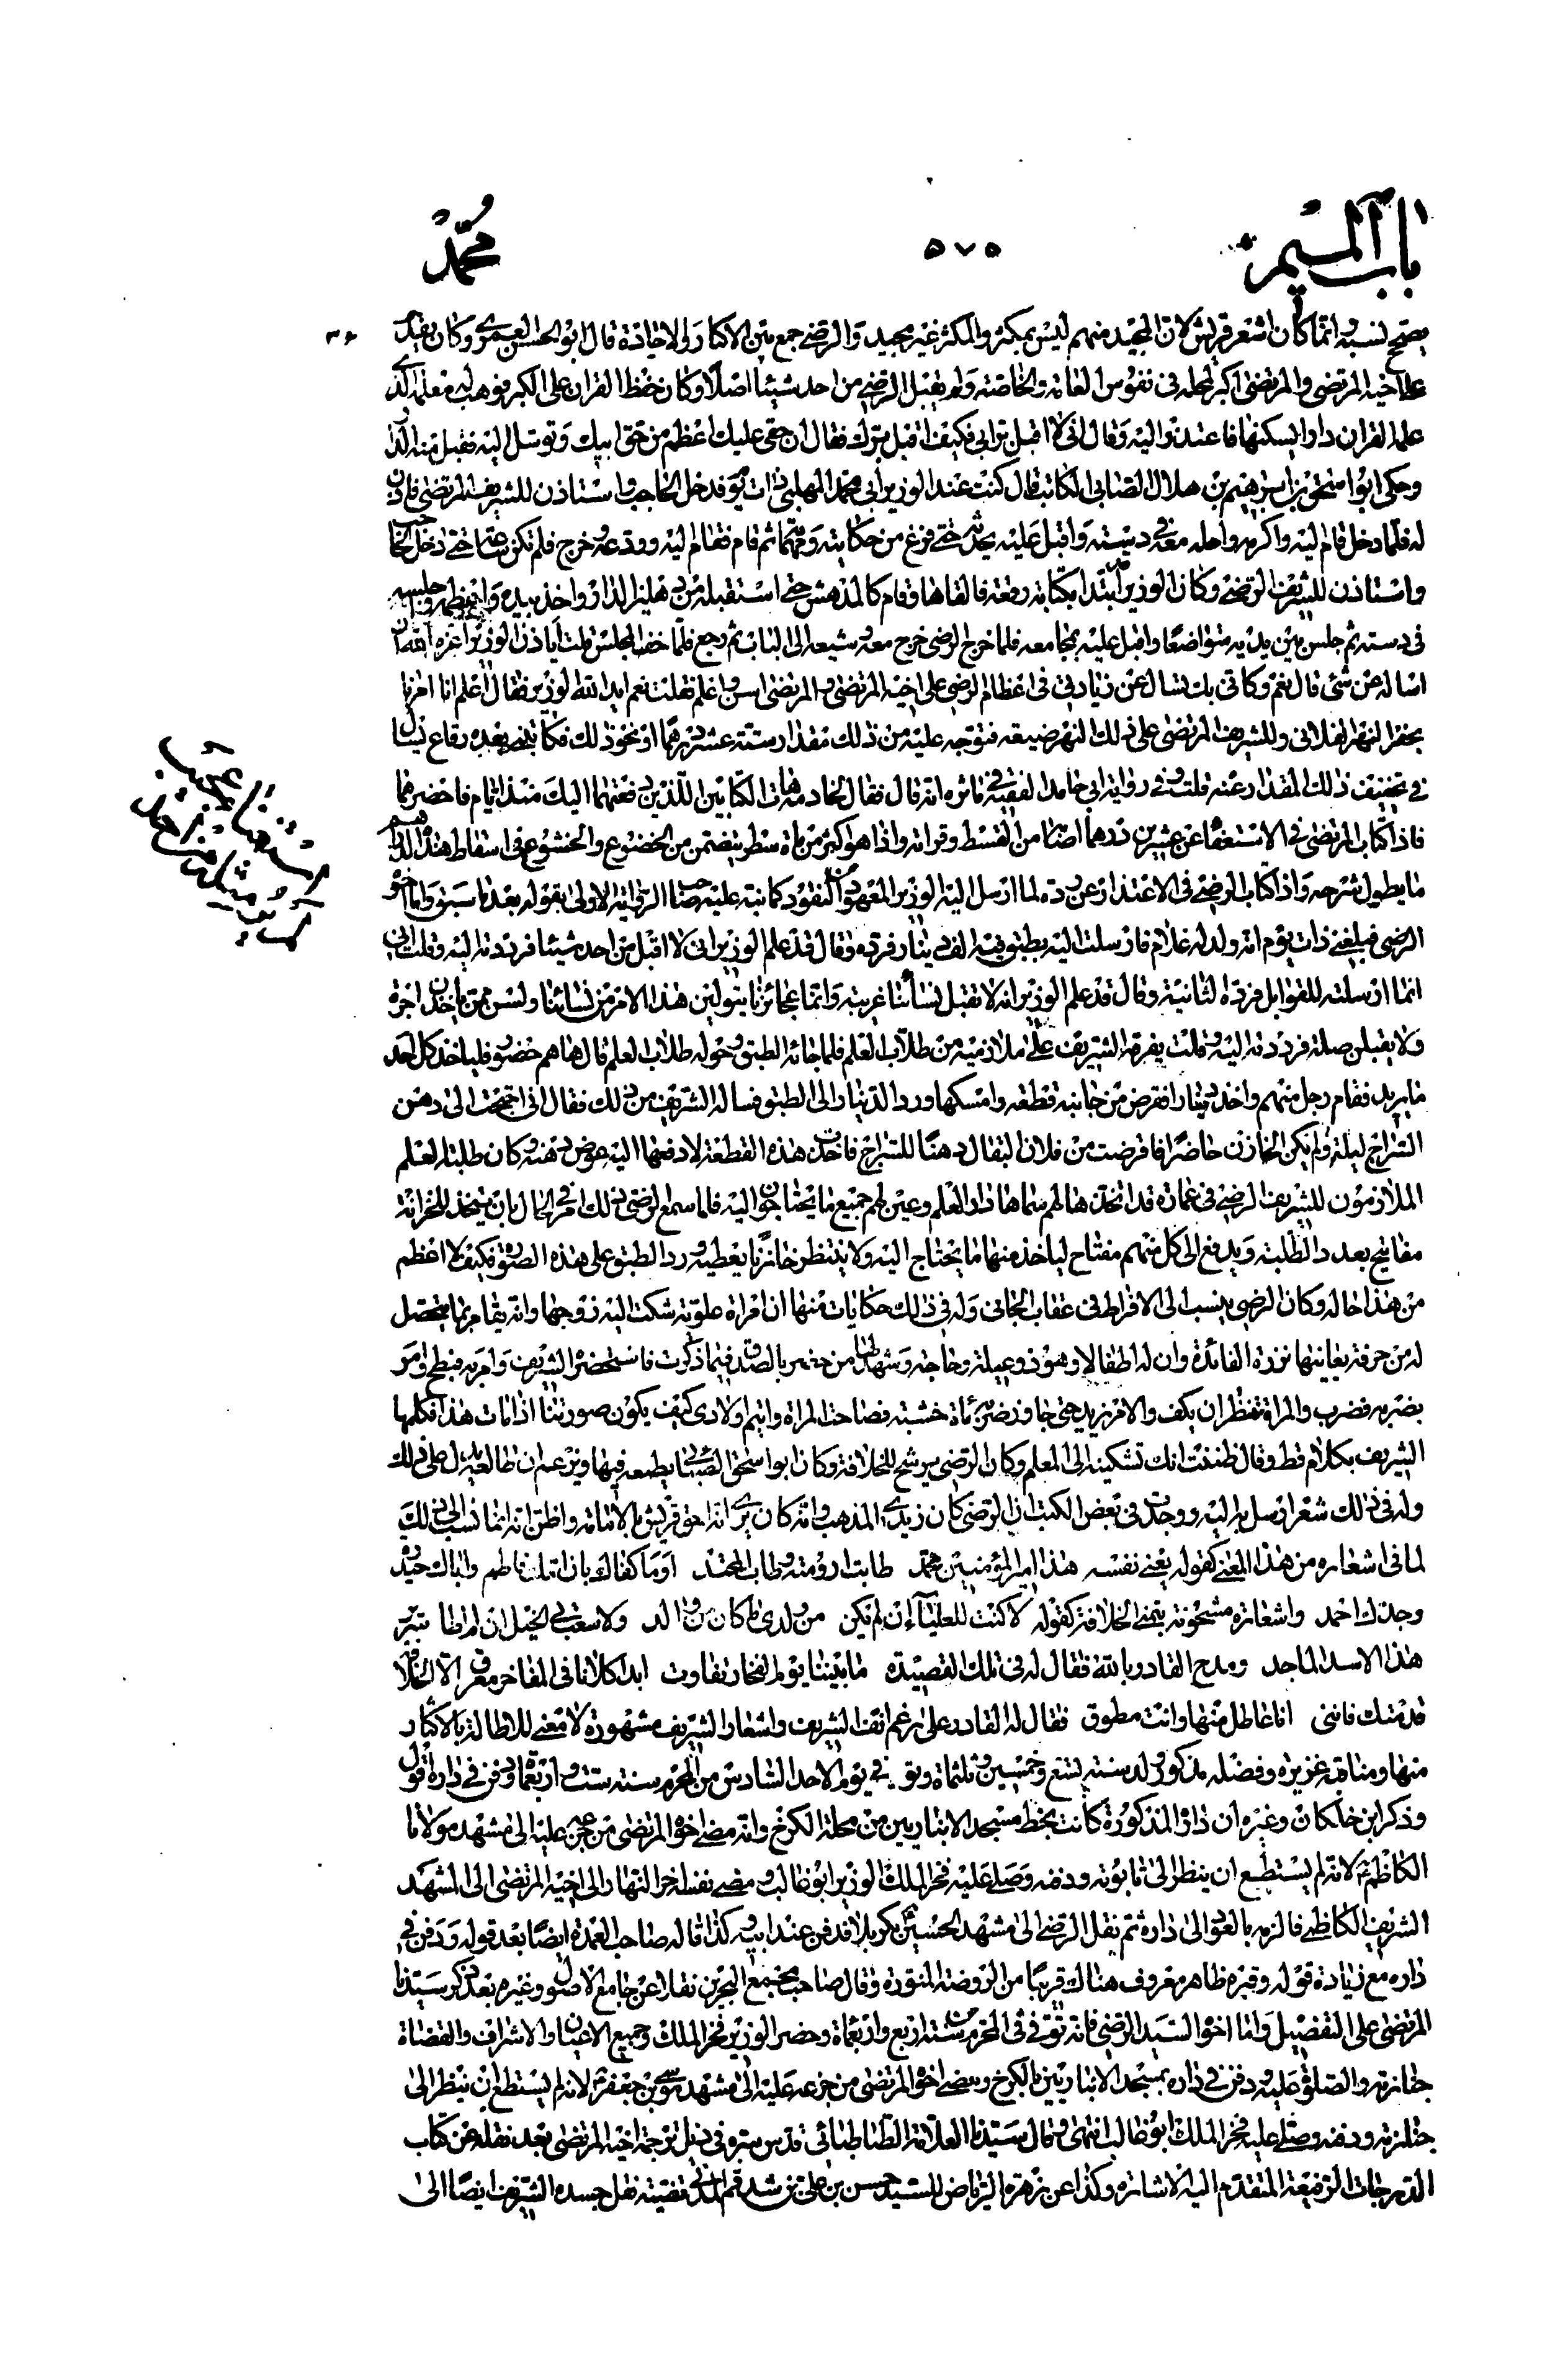 باب الميم
٥٧٥
محمد
يصح نسبه وانما كان اشعر قريش لان المجيد منهم ليس بمكثر والمكثر غير مجيد والرضي جمع بين الاكثار والاجادة قال ابو الحسن العمري وكان يفند
على اخيه المرتضى والمرتضى اكبر لمحله في نفوس العامة والخاصة ولم يقبل الرضي من احد شيئا اصلا وكان حفظ القران على الكبر فوهب له معلمه الذي
علمه القران دارا يسكنها فاعتذر اليه وقال اني لا اقبل بر ابي فكيف اقبل برك فقال ان حقي عليك اعظم من حق ابيك وتوسل اليه فقبل منه الدار
وحكى ابو اسحق بن ابرهيم بن هلال الصابي الكاتب قال كنت عند الوزير ابي محمد المهلبي ذات يوم فدخل الحاجب واستاذن للشريف المرتضى فاذن
له فلما دخل قام اليه واكرمه واجلسه معه في دسته واقبل عليه يحدثه حتى فرغ من حكايته ومهماته ثم قام فقام اليه وودعه وخرج فلم تكن ساعة حتى دخل الحاجب
واستاذن للشريف الرضي وكان الوزير ابتدا بكتابة رقعة فالقاها وقام كالمندهش حتى استقبله من دهليز الدار واخذ بيده واعظمه واجلسه
في دسته ثم جلس بين يديه متواضعا واقبل عليه بمجامعه فلما خرج الرضي خرج معه وشيعه الى الباب ثم رجع فلما خف المجلس قلت اياذن الوزير اعزه الله ان
اساله عن شئ قال نعم وكاني بك تسال عن زيادتي في اعظام الرضي على اخيه المرتضى والمرتضى اسن واعلم فقلت نعم ايد الله الوزير فقال اعلم انا امرنا
بحفر النهر الفلاني وللشريف المرتضى على ذلك النهر ضيعة فتوجه عليه من ذلك مقدار ستة عشر درهما او نحو ذلك فكاتبني بعدة رقاع يسال
في تخفيف ذلك المقدار عنه قلت وفي رواية ابي حامد الفقيه في ماثره انه قال فقال لخادمه هات الكتابين اللذين دفعتهما اليك منذ ايام فاحضرهما
فاذا كتاب المرتضى في الاستعفاء عن عشرين درهما اصابه من القسط وقراته واذا هو اكثر من ماة سطر يتضمن من الخضوع والخشوع في اسقاط هذه الدراهم
ما يطول شرحه واذا كتاب الرضي في الاعتذار عن رده لما ارسل اليه الوزير المعهود من النقود كما نبه عليه صاحب الرواية الاولى بقوله بعد ما سبق واما اخوه
الرضي فبلغني ذات يوم انه ولد له غلام فارسلت اليه بطبق فيه الف دينار فرده وقال قد علم الوزير اني لا اقبل من احد شيئا فرددته اليه وقلت اني
انما ارسلته للقوابل فرده الثانية وقال قد علم الوزير انه لا تقبل نساءنا غريبة وانما عجائزنا يتولين هذا الامر من نسائنا ولسن ممن ياخذن اجرة
ولا يقبلن صلة فرددته اليه وقلت يفرقه الشريف على ملازميه من طلاب العلم فلما جائه الطبق وحوله طلاب العلم قال ها هم حضور فلياخذ كل احد
ما يريد فقام رجل منهم واخذ دينارا فقرض من جانبه قطعة وامسكها ورد الدينار الى الطبق فساله الشريف من ذلك فقال اني احتجت الى دهن
السراج ليلة ولم يكن الخازن حاضرا فاقترضت من فلان البقال دهنا للسراج فاخذت هذه القطعة لادفعها اليه عوض دهنه وكان طلبة العلم
الملازمون للشريف الرضي في عمارة قد اتخذها لهم سماها دار العلم وعين لهم جميع ما يحتاجون اليه فلما سمع الرضي ذلك امر في الحال بان يتخذ للخزانة
مفاتيح بعدد الطلبة ويدفع الى كل منهم مفتاح لياخذ منها ما يحتاج اليه ولا ينتظر خازنا يعطيه ورد الطبق على هذه الصورة فكيف لا اعظم
من هذا حاله وكان الرضي ينسب الى الافراط في عقاب الجاني وله في ذلك حكايات منها ان امراة علوية شكت اليه زوجها وانه يقامر بما يتحصل
له من حرفة يعانيها نزرة الفائدة وان له اطفالا وهو ذو عيلة وحاجة وشهد لها من حضر بالصدق فيما ذكرت فاستحضره الشريف وامر به فبطح وامر
بضربه فضرب والمراة تنتظر ان يكف والامر يزيد حتى جاوز ضربه ماة خشبة فصاحت المراة وايتم اولادي كيف يكون صورتنا اذا مات هذا فكلمها
الشريف بكلام فظ وقال ظننت انك تشكينه الى المعلم وكان الرضي يرشح للخلافة وكان ابو اسحق الصابي يطمعه فيها ويزعم ان طالعه يدل على ذلك
وله في ذلك شعر ارسل به اليه ووجدت في بعض الكتب ان الرضي كان زيدي المذهب وانه كان يرى انه احق قريش بالامامة واظن انه انما نسب الى ذلك
لما في اشعاره من هذا المعنى كقوله يعني نفسه هذا امير المؤمنين محمد طابت ارومته وطاب المحتد اوما كفاك بان امك فاطم واباك حيدرة
وجدك احمد واشعاره مشحونة بتمني الخلافة كقوله لا كنت للعلياء ان لم يكن من ولدي ما كان من والد ولا سعت بي الخيل ان لم اطا سرير
هذا الاسد الماجد ومدح القادر بالله فقال له في تلك القصيدة ما بيننا يوم الفخار تفاوت ابدا كلانا في المفاخر معرق الا الخلافة
قدمتك فانني انا عاطل منها وانت مطوق فقال له القادر على رغم انف الشريف واشعار الشريف مشهورة لا معنى للاطالة بالاكثار
منها ومناقبه غزيرة وفضله مذكور ولد سنة تسع وخمسين وثلثماة وتوفي في يوم الاحد السادس من المحرم سنة ست واربعماة ودفن في داره اقول
وذكر ابن خلكان وغيره ان داره المذكورة كانت بخط مسجد الانباريين من محلة الكرخ وانه مضى اخوه المرتضى من جزعه عليه الى مشهد مولانا
الكاظم لانه لم يستطع ان ينظر الى تابوته ودفنه وصلى عليه فخر الملك الوزير ابو غالب ومضى بنفسه اخر النهار الى اخيه المرتضى الى المشهد
الشريف الكاظمي فالزمه بالعود الى داره ثم نقل الرضي الى مشهد الحسين بكربلا فدفن عند ابيه وكذا قاله صاحب العمدة ايضا بعد قوله ودفن في
داره مع زيادة قوله وقبره ظاهر معروف هناك قريبا من الروضة المنورة وقال صاحب مجمع البحرين نقلا عن جامع الاصول وغيره بعد ذكر سيدنا
المرتضى على التفصيل واما اخوه السيد الرضي فانه توفي في المحرم من سنة اربع واربعماة وحضر الوزير فخر الملك وجميع الاعيان والاشراف والقضاة
جنازته والصلوة عليه ودفن في داره بمسجد الانباريين بالكرخ ومضى اخوه المرتضى من جزعه عليه الى مشهد موسى بن جعفر لانه لم يستطع ان ينظر الى
جنازته ودفنه وصلى عليه فخر الملك ابو غالب انتهى وقال سيدنا العلامة الطباطبائي قدس سره في ذيل ترجمة اخيه المرتضى بعد نقله عن كتاب
الدرجات الرفيعة المتقدم اليه الاشارة وكذا عن زهرة الرياض للسيد حسن بن علي بن شدقم المدني تقيته نقل جسده الشريف ايضا الى